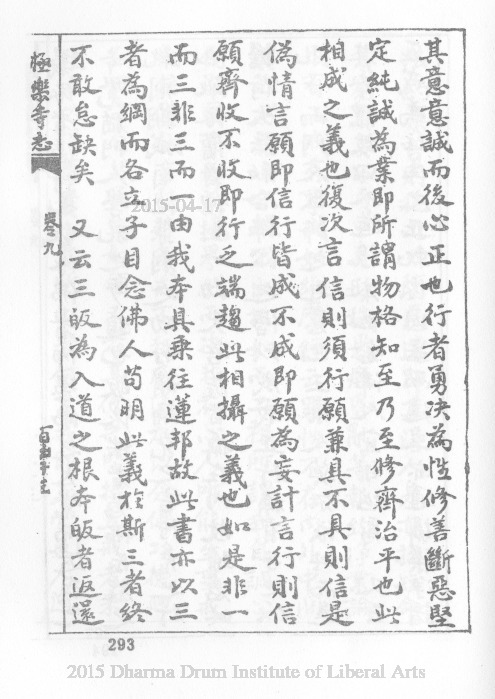 其意意誠而後心正也行者勇决為性修善斷惡堅
定純誠為業即所謂物格知至乃至修齊治平也此
相成之義也復次言信則須行願兼具不具則信是
偽情言願即信行皆成不成即願為妄計言行則信
願齊收不收即行乏端趨此相攝之義也如是非一
而三非三而一由我本具乗往蓮邦故此書亦以三
者為綱而各立子目念佛人苟明此義於斯三者終
不敢怠缺矣　又云三皈為入道之根本皈者返還
極樂寺志
卷九
293
2015-04-17
2015 Dharma Drum Institute of Liberal Arts